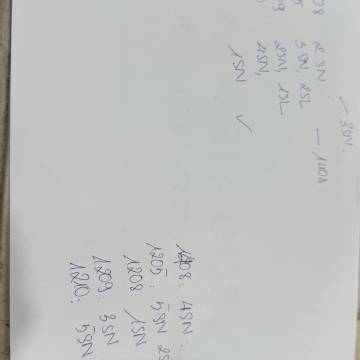 — 3SN.
08 2 SN
5 3 SN, 2SL — 1408
09 2SN, 1SL
4SN,
1SN ✓
1408: 4SN.
1205: 5SN 2S
1208: 1SN
1209: 3SN
1210: 5SN